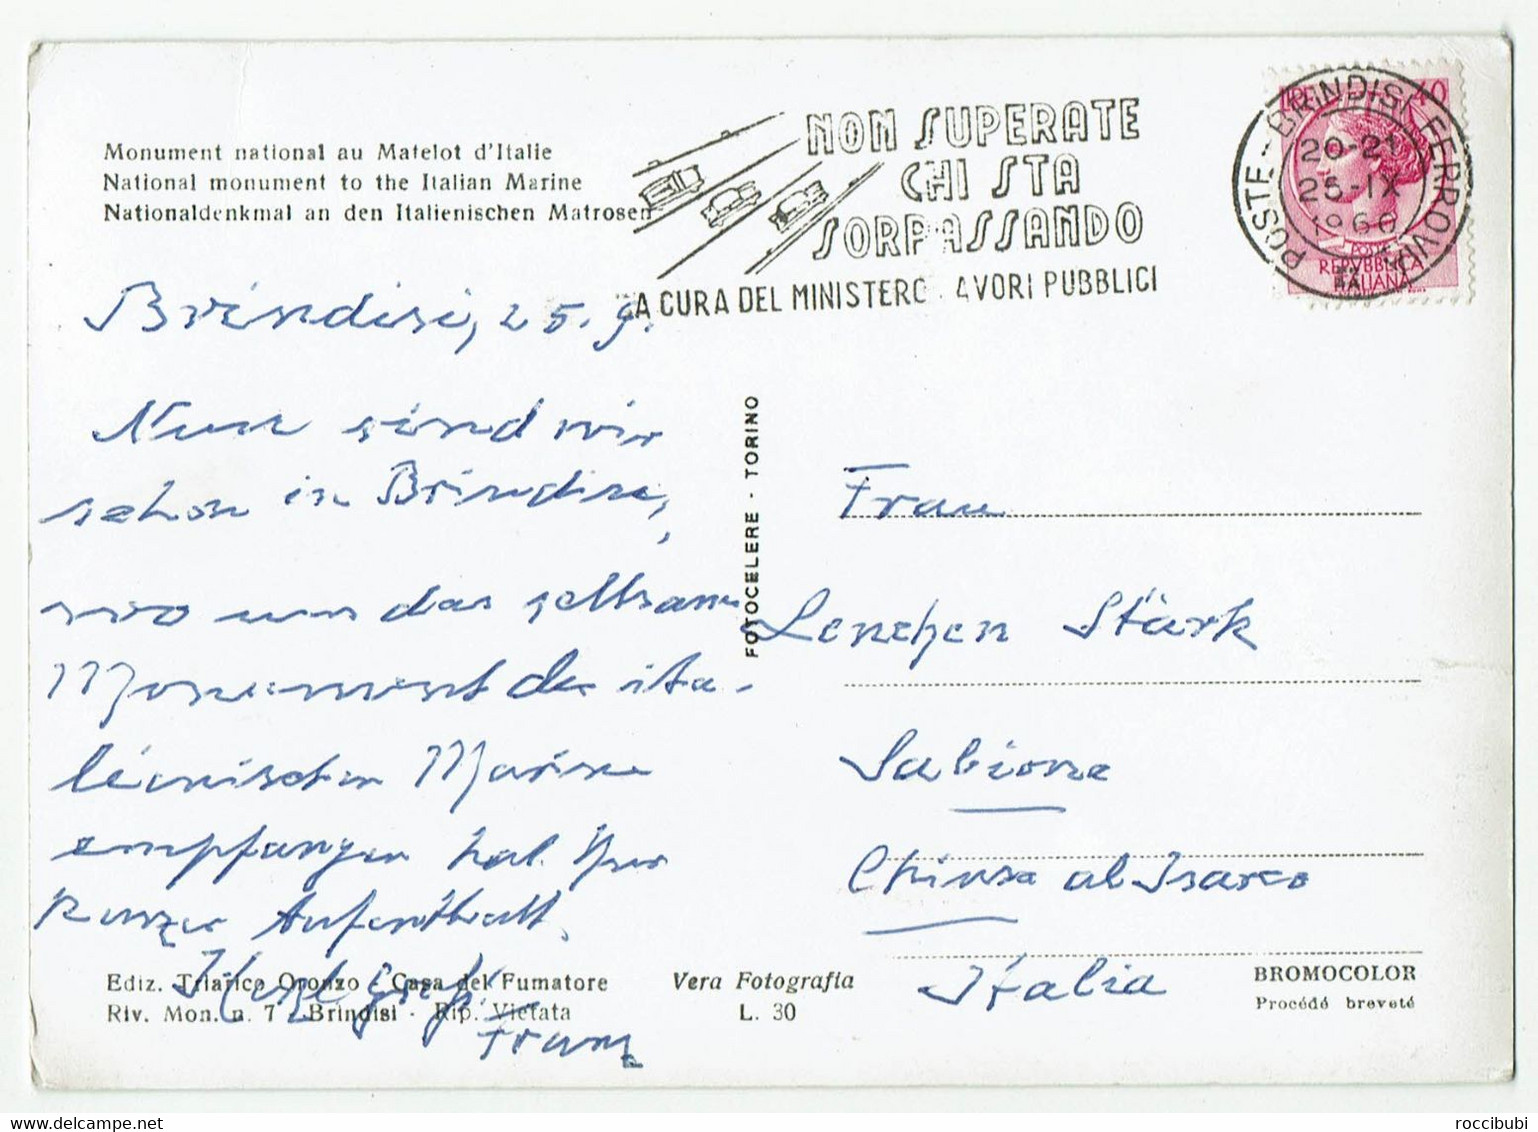 Monument national au Matelot d'Italie
National monument to the Italian Marine
Nationaldenkmal an den Italienischen Matrosen
NON SUPERATE
CHI STA
SORPASSANDO
A CURA DEL MINISTERO AVORI PUBBLICI
LIRE 40
POSTE - BRINDISI FERROVIA
20-21
25-IX
1960
POSTE
REPVBBLICA
ITALIANA
Brindisi, 25.9.
Nun sind wir
schon in Brindisi,
wo uns das seltsame
Monument der ita-
lienischen Marine
empfangen hat. Nur
kurzer Aufenthalt.
Herzlichst
Franz
FOTOCELERE - TORINO
Frau
Lenchen Stark
Sabiona
Chiusa al Isarco
Italia
Ediz. Triarico Oronzo - Casa del Fumatore
Riv. Mon. n. 7 - Brindisi - Rip. Vietata
Vera Fotografia
L. 30
BROMOCOLOR
Procédé breveté
roccibubi